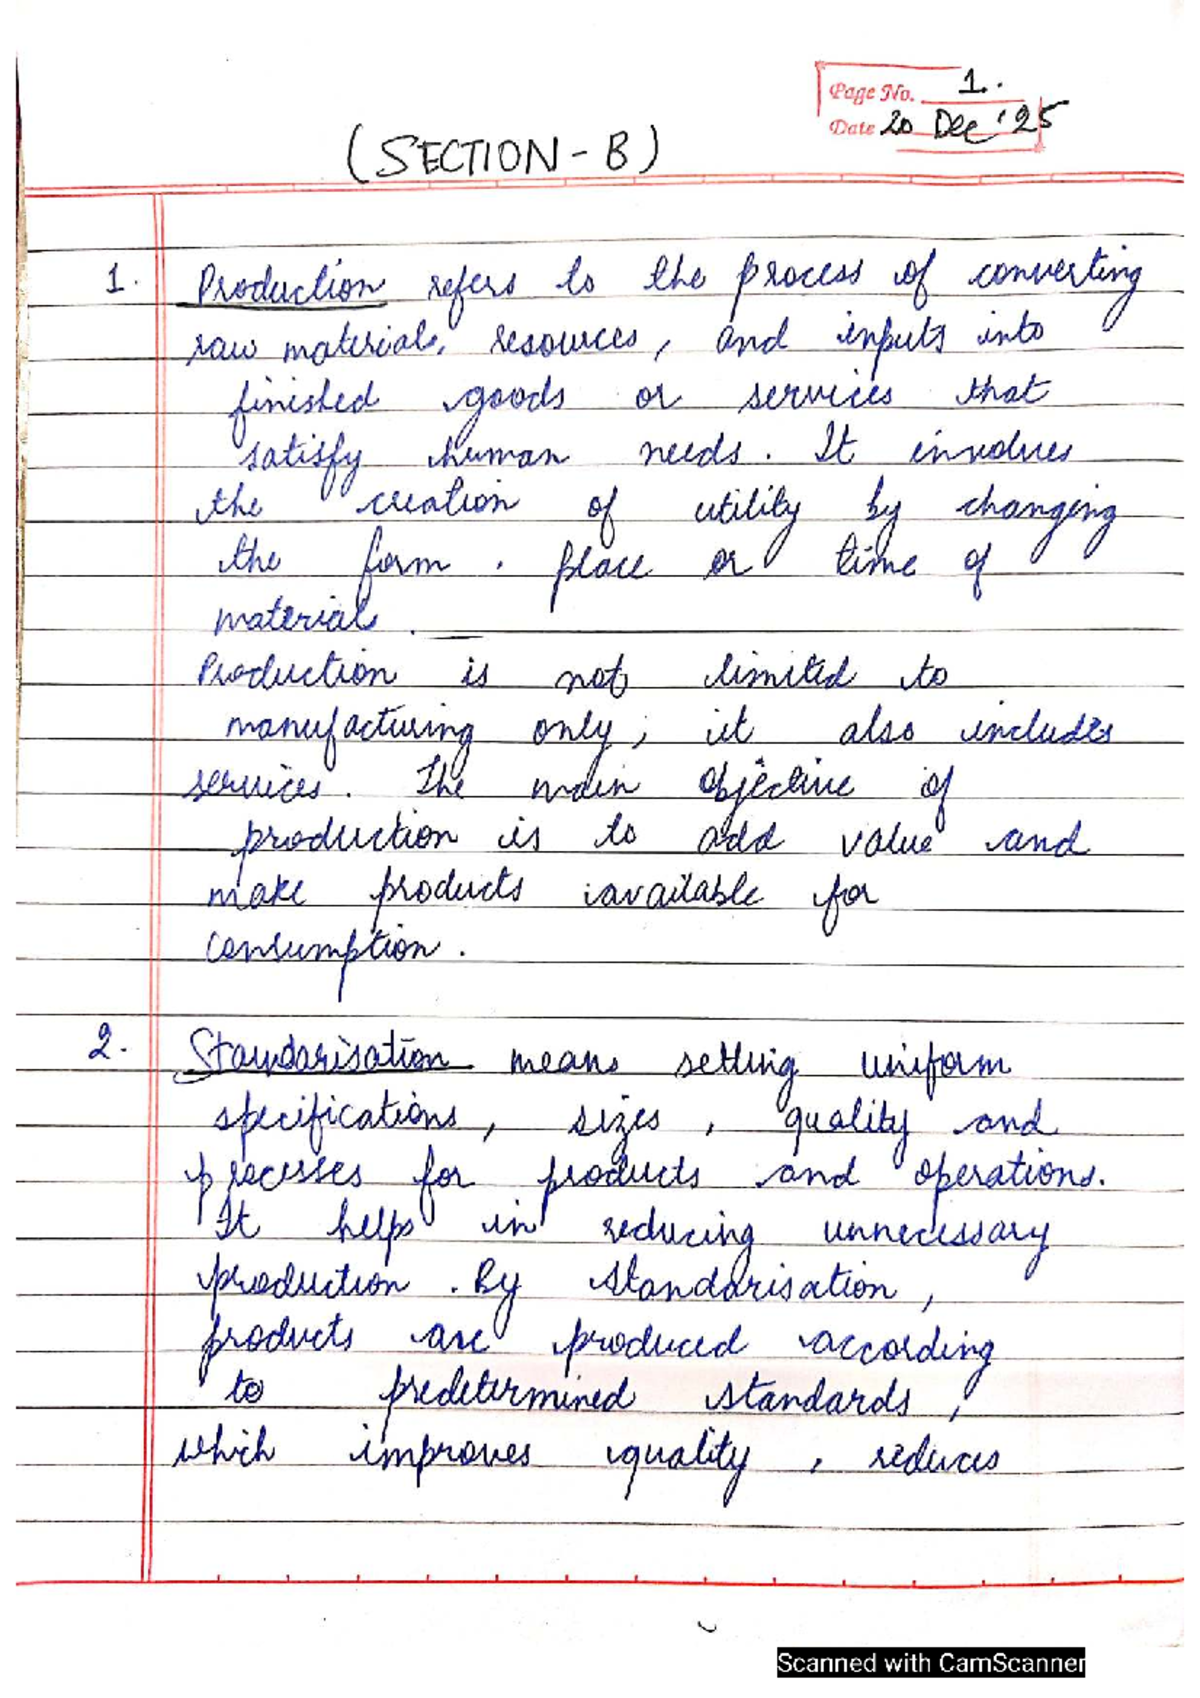 Page No. 1.
Date 20 Dec '25
(SECTION - B)
1. Production refers to the process of converting
raw materials, resources, and inputs into
finished goods or services that
satisfy human needs. It involves
the creation of utility by changing
the form , place or time of
material .
Production is not limited to
manufacturing only ; it also includes
services . The main objective of
production is to add value and
make products available for
consumption .
2. Standarisation means setting uniform
specifications , sizes , quality and
processes for products and operations.
It helps in reducing unnecessary
production . By standarisation ,
products are produced according
to predetermined standards ,
which improves quality , reduces
Scanned with CamScanner